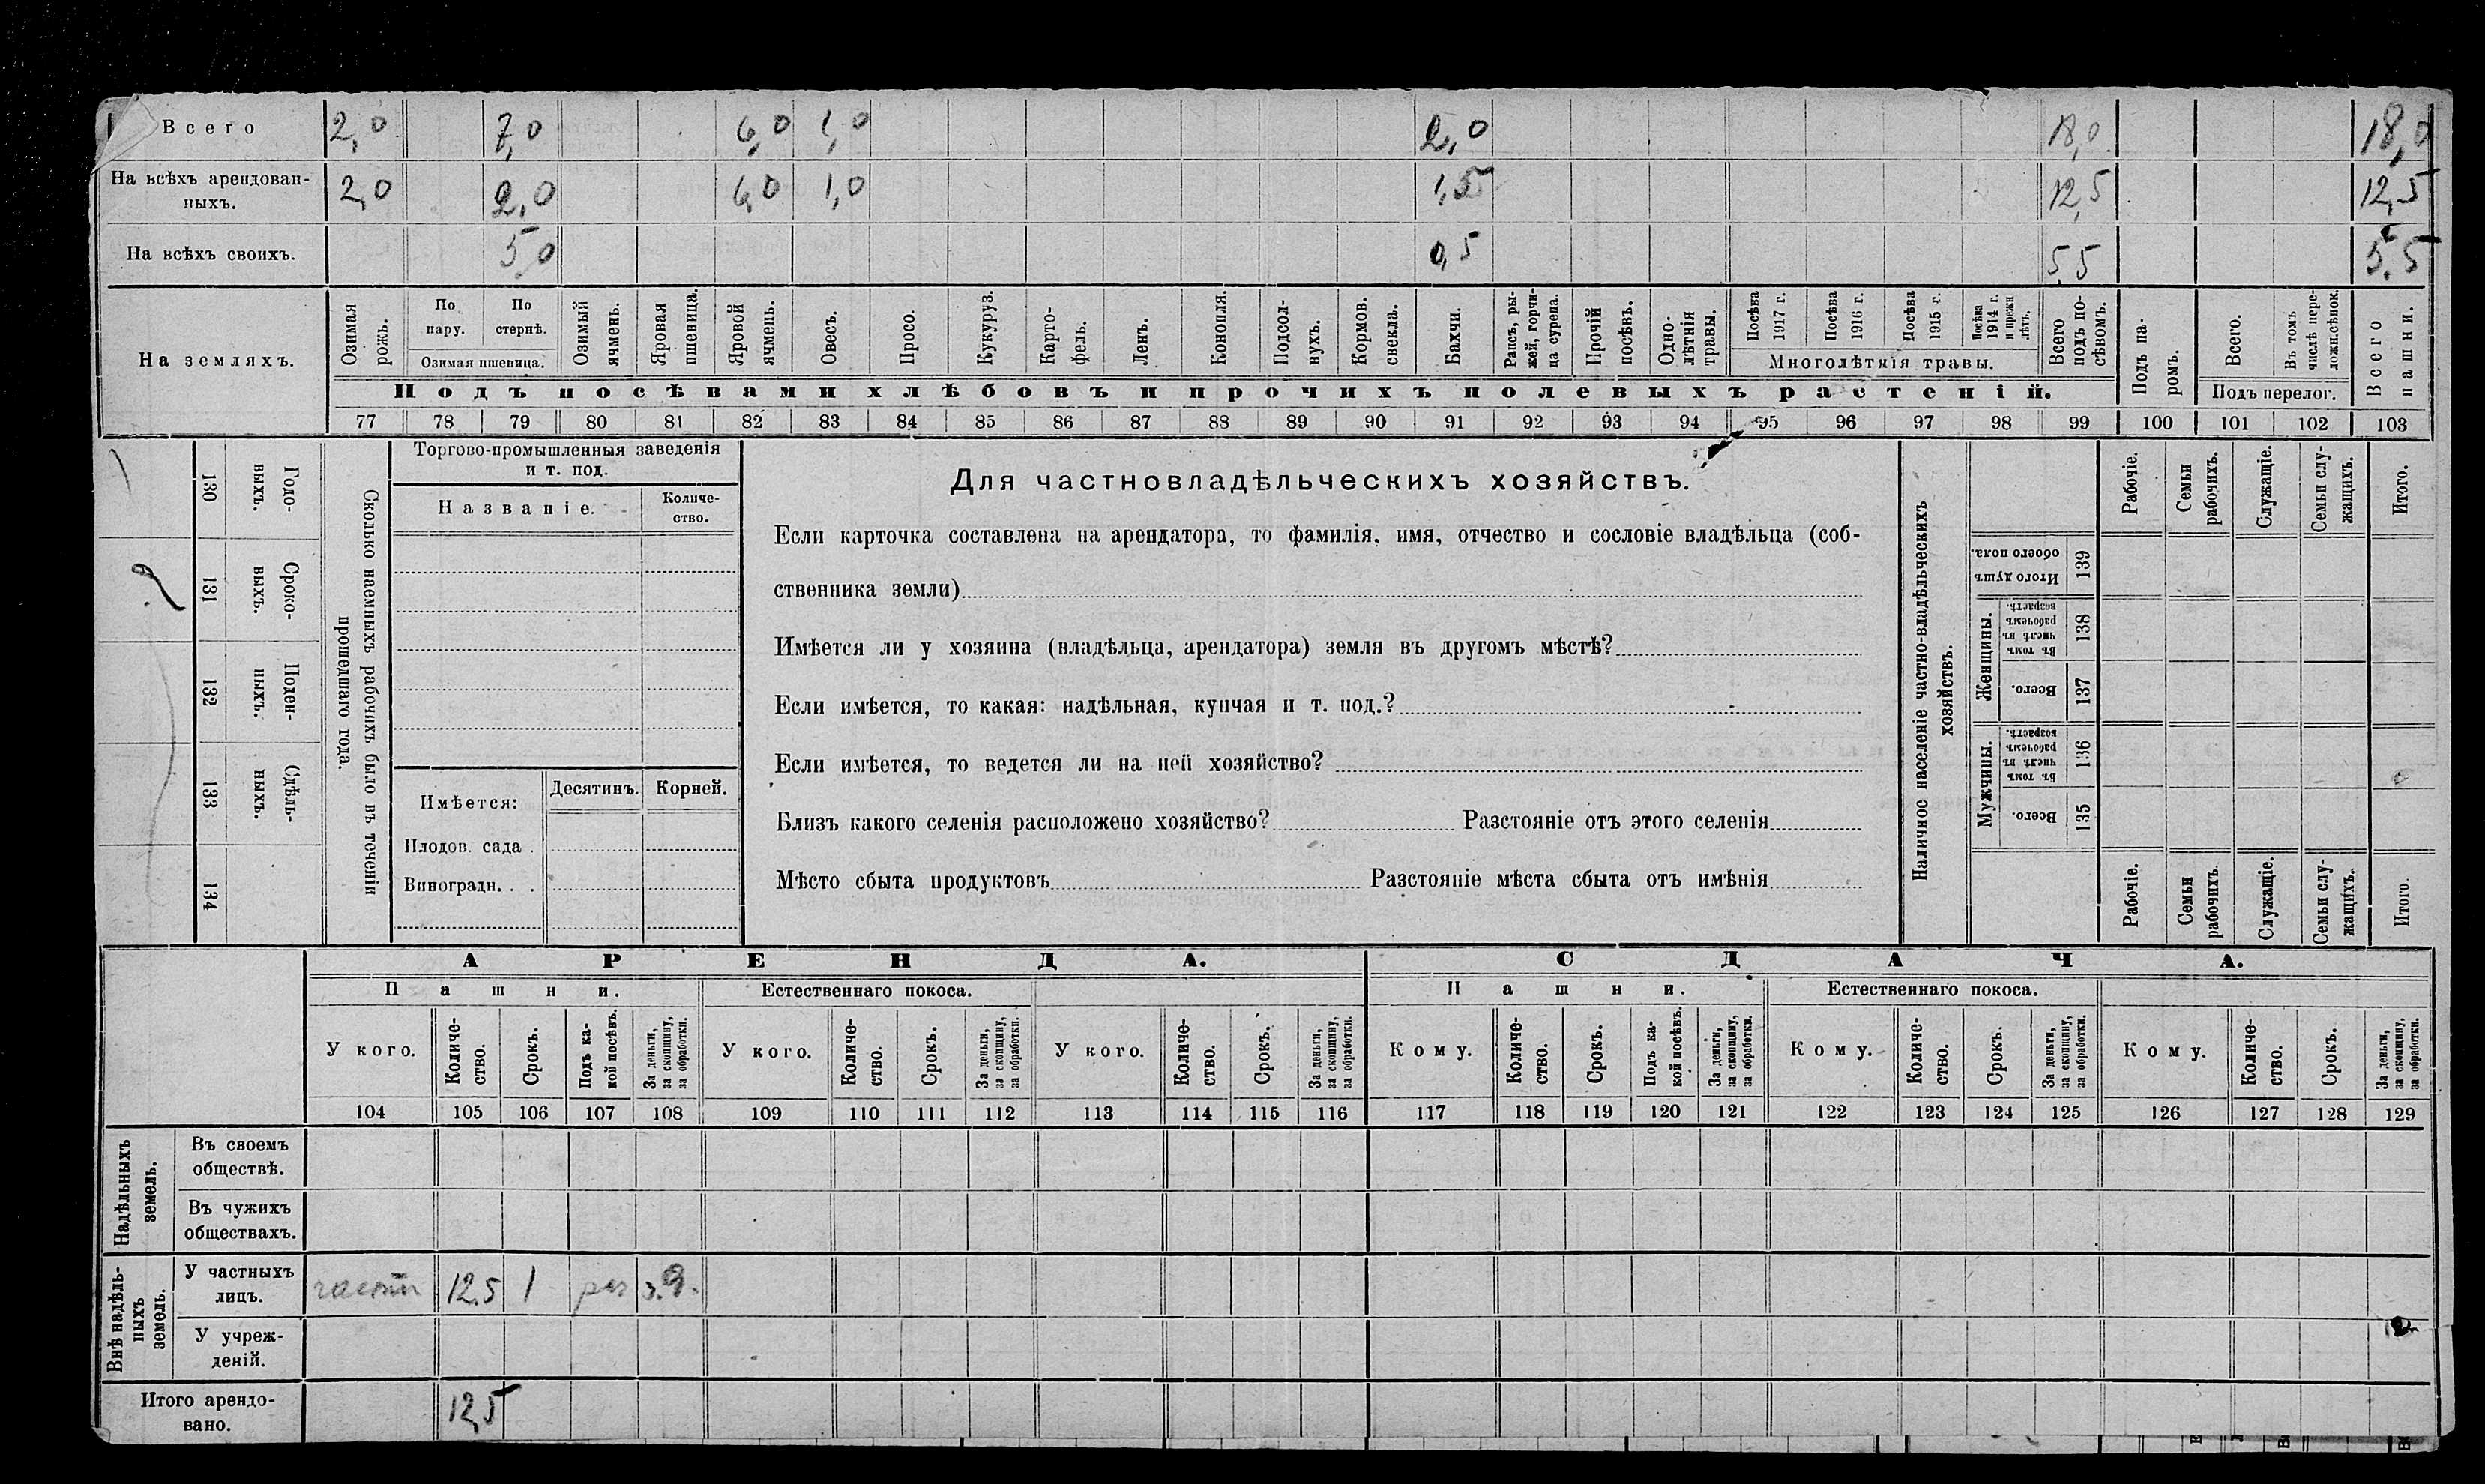 Всего 2,0 7,0 6,0 1,0 2,0 18,0 18,0
На всѣхъ арендован-
ныхъ. 2,0 2,0 6,0 1,0 1,5 12,5 12,5
На всѣхъ своихъ. 5,0 0,5 5,5 5,5
На земляхъ.
Озимая рожь.
По пару.
По стернѣ.
Озимая пшеница.
Озимый ячмень.
Яровая пшеница.
Яровой ячмень.
Овесъ.
Просо.
Кукуруз.
Карто-
фель.
Ленъ.
Конопля.
Подсол-
нухъ.
Кормов. свекла.
Бахчи.
Рапсъ, ры-
жей, горчи-
ца сурепа.
Прочій посѣвъ.
Одно-
лѣтнія травы.
Посѣва 1917 г.
Посѣва 1916 г.
Посѣва 1915 г.
Посѣва 1914 г. и прежн лѣтъ.
Многолѣтнія травы.
Всего подъ по-
сѣвомъ.
Подъ па-
ромъ.
Всего.
Въ томъ числѣ пере-
ложн.сѣнокос.
Подъ перелог.
Всего пашни.
Подъ посѣвами хлѣбовъ и прочихъ полевыхъ растеній.
77 78 79 80 81 82 83 84 85 86 87 88 89 90 91 92 93 94 95 96 97 98 99 100 101 102 103
130 Годо-
выхъ.
131 Сроко-
выхъ.
132 Поден-
ныхъ.
133 Сдѣль-
ныхъ.
134
Сколько наемныхъ рабочихъ было въ теченіи
прошедшаго года.
Торгово-промышленныя заведенія
и т. под.
Названіе.
Количе-
ство.
Имѣется:
Десятинъ.
Корней.
Плодов. сада .
Виноградн. . .
Для частновладѣльческихъ хозяйствъ.
Если карточка составлена на арендатора, то фамилія, имя, отчество и сословіе владѣльца (соб-
ственника земли)
Имѣется ли у хозяина (владѣльца, арендатора) земля въ другомъ мѣстѣ?
Если имѣется, то какая: надѣльная, купчая и т. под.?
Если имѣется, то ведется ли на ней хозяйство?
Близъ какого селенія расположено хозяйство? Разстояніе отъ этого селенія
Мѣсто сбыта продуктовъ Разстояніе мѣста сбыта отъ имѣнія
Наличное населеніе частно-владѣльческихъ
хозяйствъ.
Рабочіе.
Семьи рабочихъ.
Служащіе.
Семьи слу-
жащихъ.
Итого.
Итого душъ
обоего пола.
139
Женщины.
Въ томъ числѣ въ рабочемъ возрастѣ.
138
Всего.
137
Мужчины.
Въ томъ числѣ въ рабочемъ возрастѣ.
136
Всего.
135
Рабочіе.
Семьи рабочихъ.
Служащіе.
Семьи слу-
жащихъ.
Итого.
АРЕНДА. СДАЧА.
Пашни. Естественнаго покоса. Пашни. Естественнаго покоса.
У кого.
Количе-
ство.
Срокъ.
Подъ ка-
кой посѣвъ.
За деньги,
за скопщину,
за обработки.
У кого.
Количе-
ство.
Срокъ.
За деньги,
за скопщину,
за обработки.
У кого.
Количе-
ство.
Срокъ.
За деньги,
за скопщину,
за обработки.
Кому.
Количе-
ство.
Срокъ.
Подъ ка-
кой посѣвъ.
За деньги,
за скопщину,
за обработки.
Кому.
Количе-
ство.
Срокъ.
За деньги,
за скопщину,
за обработки.
Кому.
Количе-
ство.
Срокъ.
За деньги,
за скопщину,
за обработки.
104 105 106 107 108 109 110 111 112 113 114 115 116 117 118 119 120 121 122 123 124 125 126 127 128 129
Надѣльныхъ
земель.
Въ своемъ
обществѣ.
Въ чужихъ
обществахъ.
Внѣ надѣль-
ныхъ
земель.
У частныхъ
лицъ. 12,5 1 раз з.д.
У учреж-
деній.
Итого арендо-
вано. 12,5